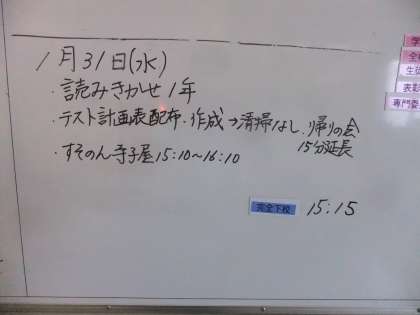 1月31日(水)
・読みきかせ 1年
・テスト計画表配布・作成→清掃なし、帰りの会
15分延長
・すそのん寺子屋 15:10~16:10
完全下校 15:15
生徒
表彰
専門委